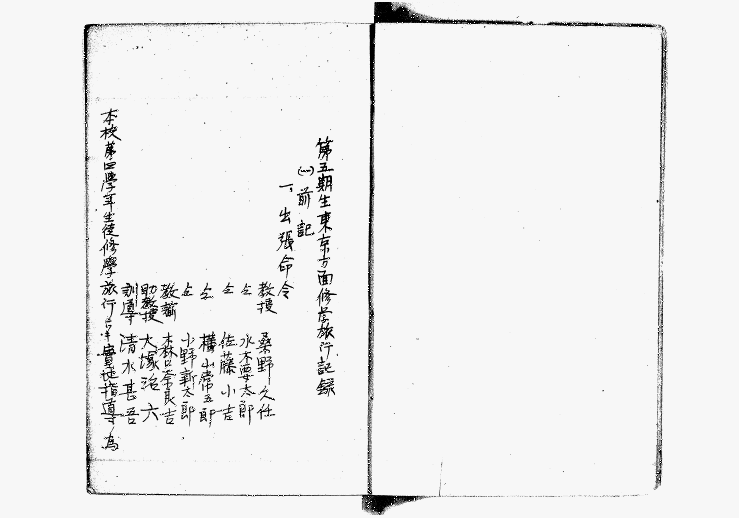 第五期生東京方面修学旅行記録
(一)前記
一、出張命令
教授 桑野久任
仝 水木要太郎
仝 佐藤小吉
仝 横山常五郎
仝 小野新太郎
教諭 森口奈良吉
助教授 大塚治六
訓導 清水甚吾
本校第四學年生徒修學旅行ニ實地指導ノ為